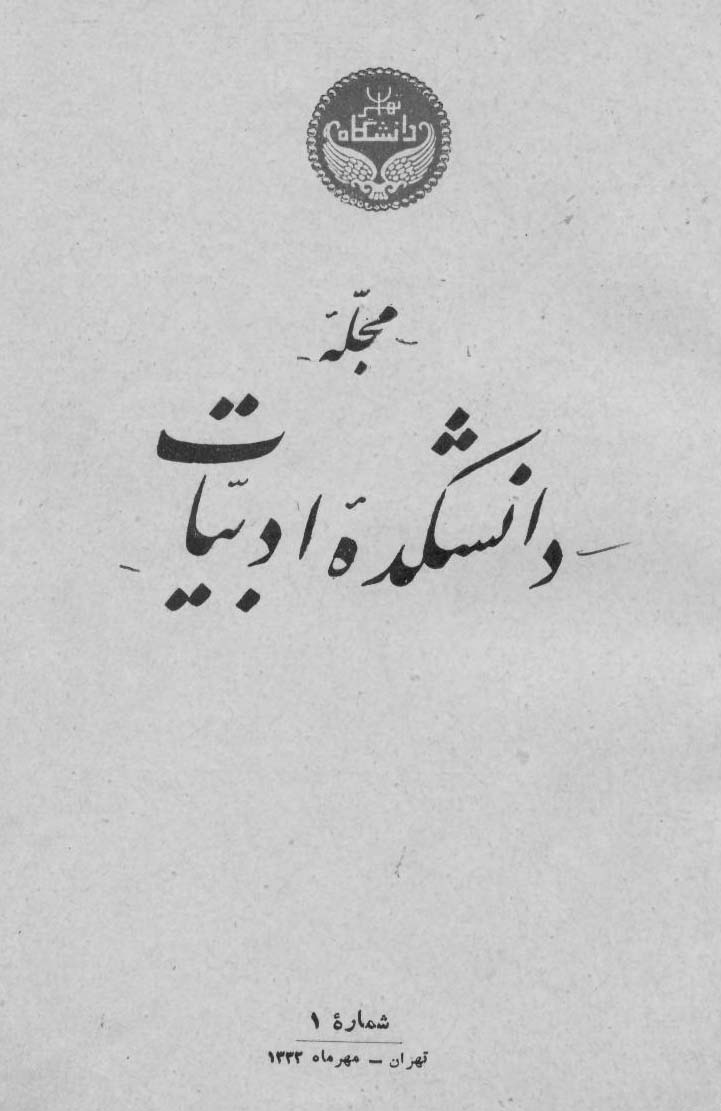 دانشگاه تهران
مجلّهٔ
دانشکدهٔ ادبیّات
شمارهٔ ۱
تهران ـ مهرماه ۱۳۳۲